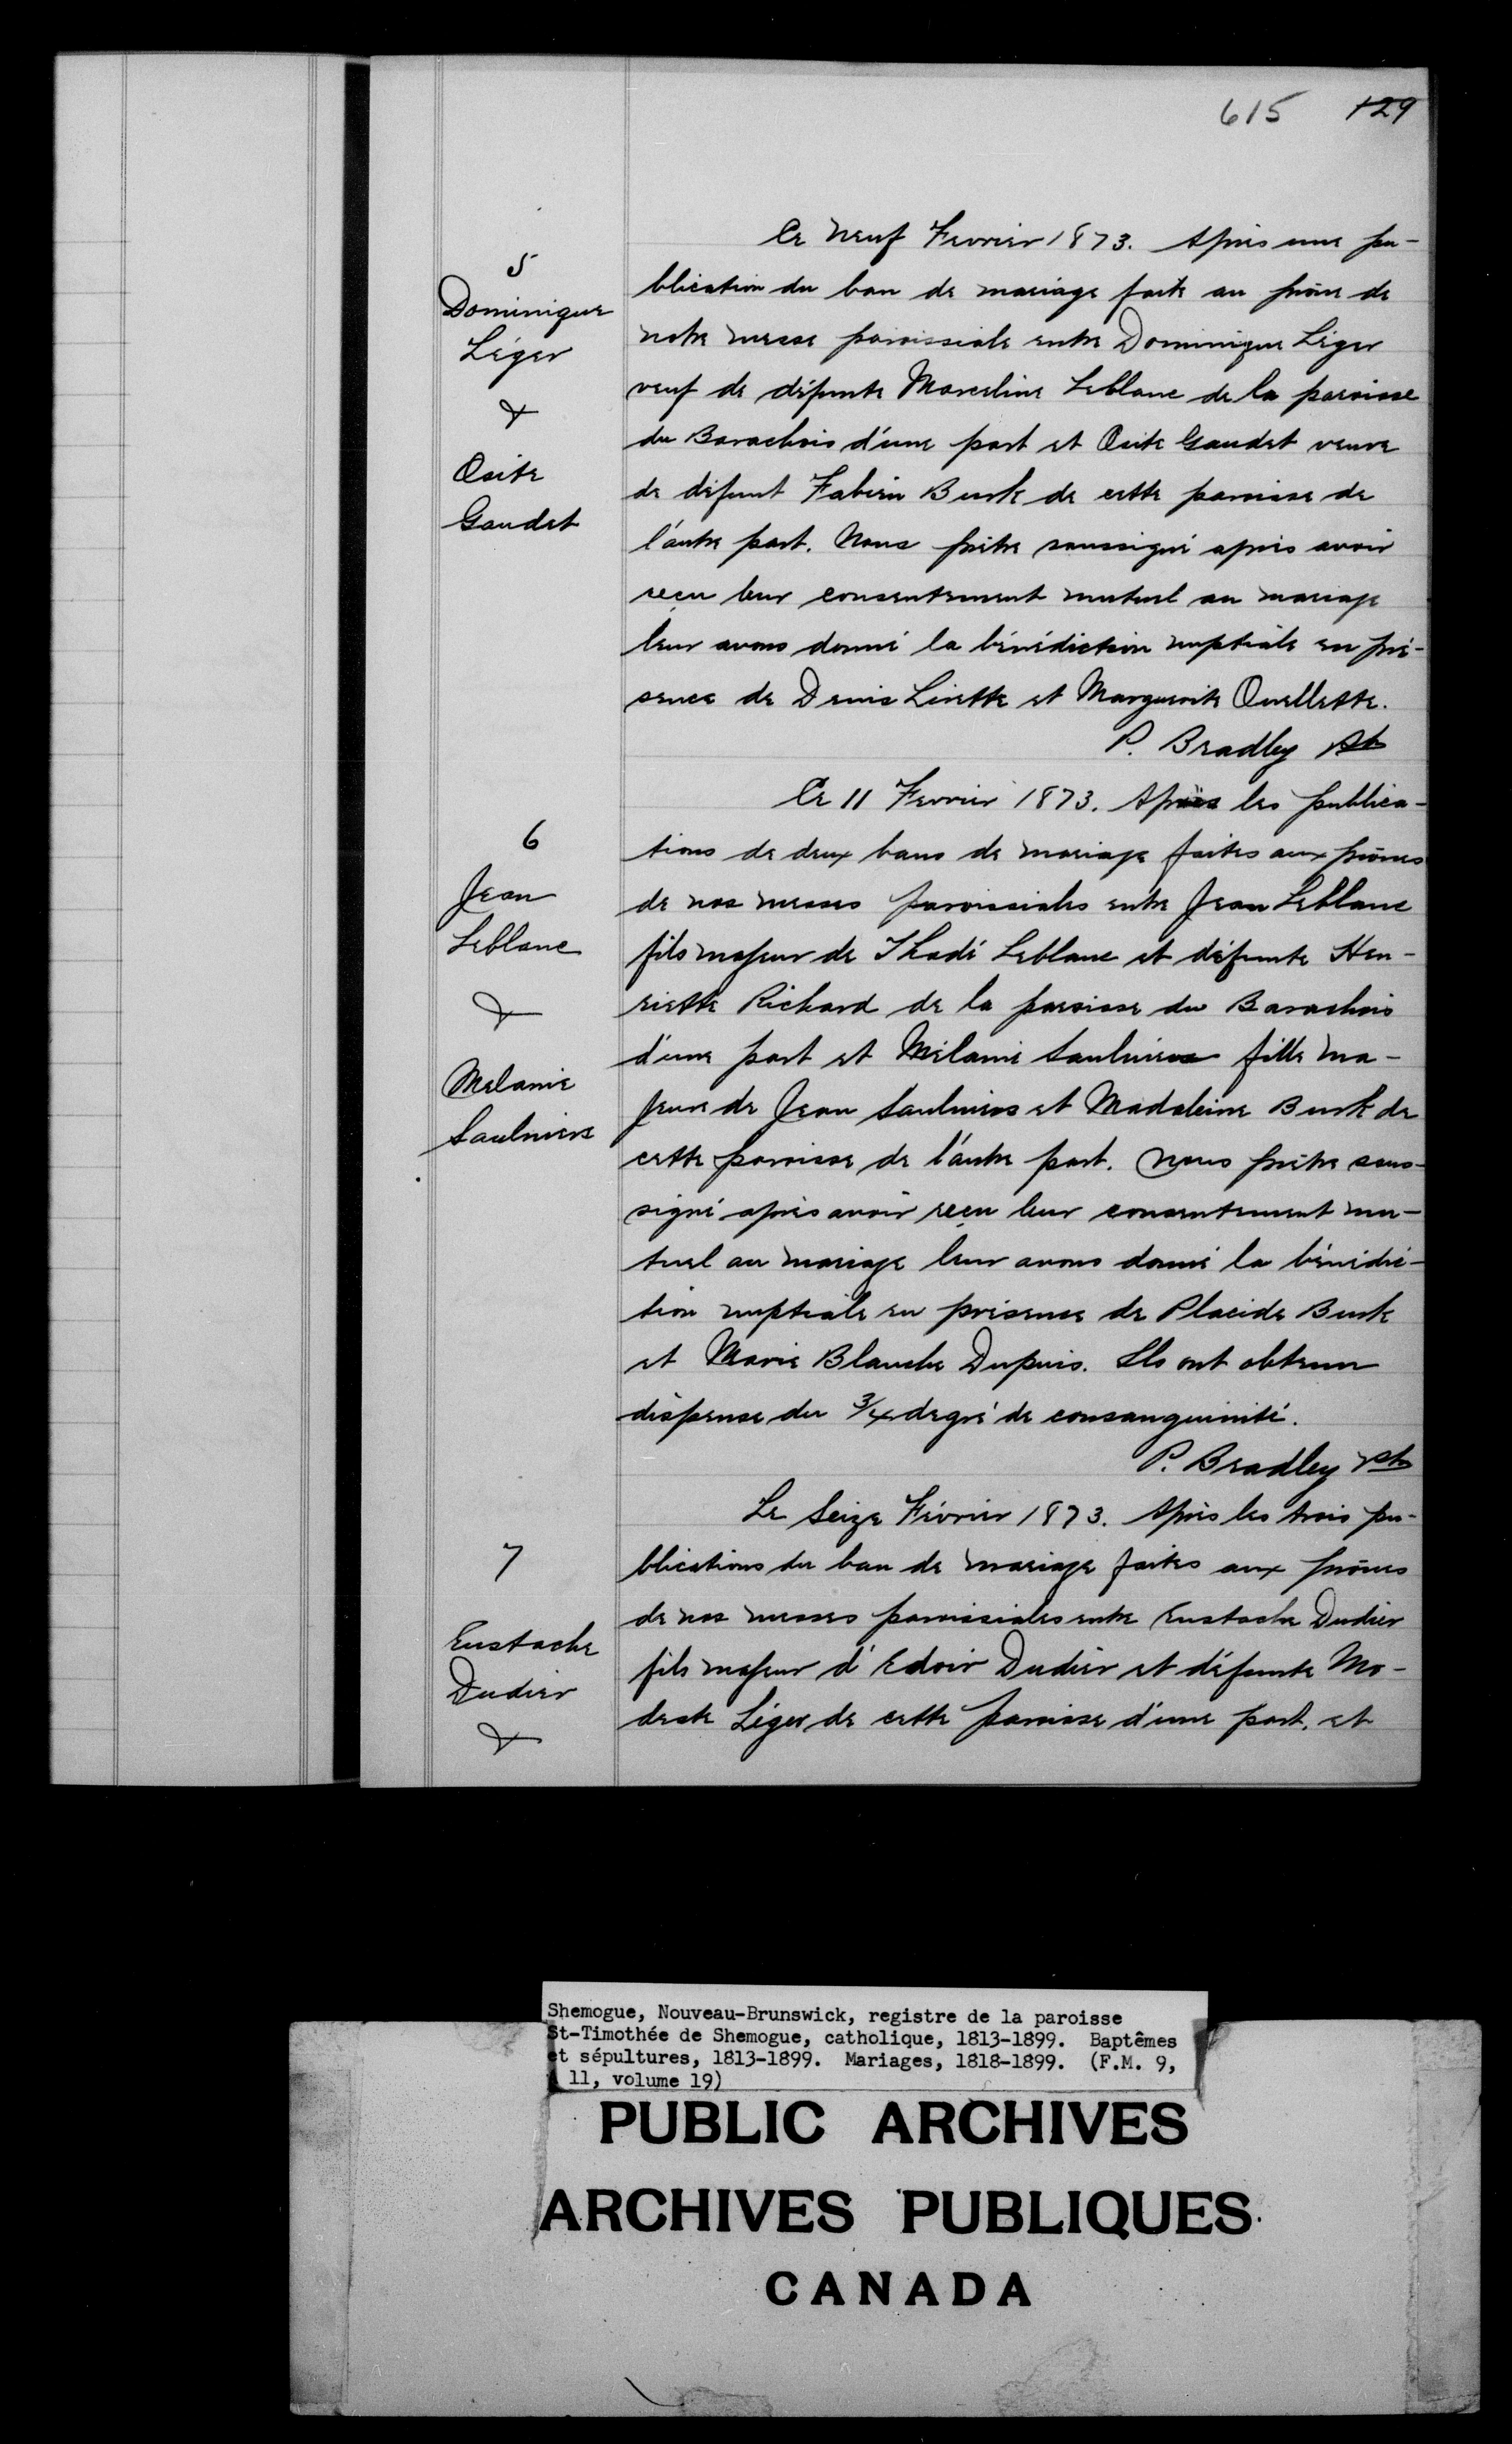 615 129
5
Dominique
Léger
&
Osite
Gaudet
Ce neuf Fevrier 1873. Après une pu-
blication du ban de mariage faite au prône de
notre messe paroissiale entre Dominique Léger
veuf de défunte Marceline Leblanc de la paroisse
du Barachois d'une part et Osite Gaudet veuve
de défunt Fabien Burk de cette paroisse de
l'autre part. Nous prêtre soussigné après avoir
reçu leur consentement mutuel au mariage
leur avons donné la bénédiction nuptiale en pré-
sence de Denis Livette et Marguerite Ouellette.
P. Bradley ptr
6
Jean
Leblanc
&
Melanie
Saulniers
Ce 11 Fevrier 1873. Après les publica-
tions de deux bans de mariage faites aux prônes
de nos messes paroissiales entre Jean Leblanc
fils majeur de Thadé Leblanc et défunte Hen-
riette Richard de la paroisse du Barachois
d'une part et Mélanie Saulniers fille ma-
jeure de Jean Saulniers et Madeleine Burk de
cette paroisse de l'autre part. Nous prêtre sous-
signé après avoir reçu leur consentement mu-
tuel au mariage leur avons donné la bénédic-
tion nuptiale en présence de Placide Burk
et Marie Blanche Dupuis. Ils ont obtenu
dispense du 3/4 degré de consanguinité.
P. Bradley ptr
7
Eustache
Dudier
&
Le Seize Février 1873. Après les trois pu-
blications du ban de mariage faites aux prônes
de nos messes paroissiales entre Eustache Dudier
fils majeur d'Edoir Dudier et défunte Mo-
deste Léger de cette paroisse d'une part, et
Shemogue, Nouveau-Brunswick, registre de la paroisse
St-Timothée de Shemogue, catholique, 1813-1899. Baptêmes
et sépultures, 1813-1899. Mariages, 1818-1899. (F.M. 9,
11, volume 19)
PUBLIC ARCHIVES
ARCHIVES PUBLIQUES
CANADA